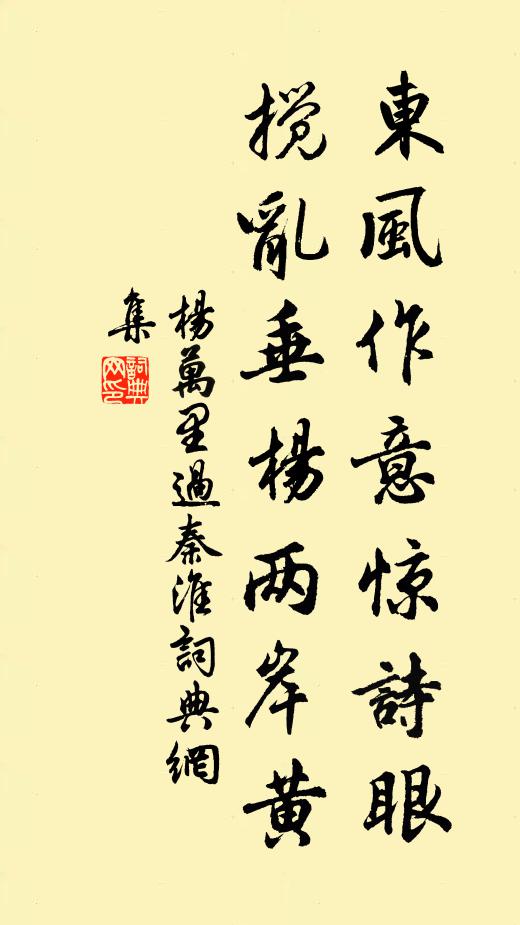 東風作意惊詩眼
搅亂垂楊两岸黄
楊萬里過秦淮詞典網
集
詞典
网印